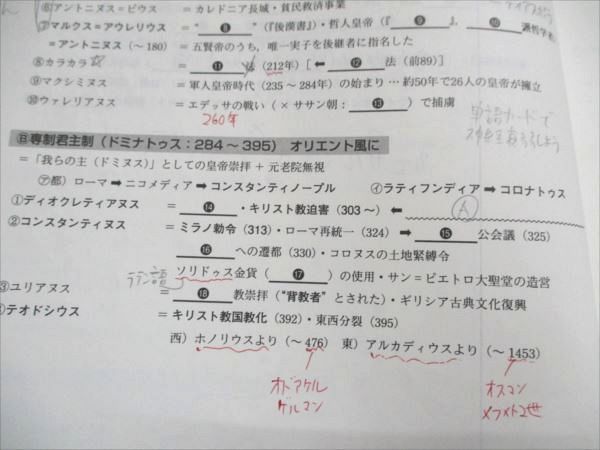 ⑥アントニヌス＝ピウス = カレドニア長城・貧民救済事業
⑦マルクス＝アウレリウス = “ ❽ ”(『後漢書』)・哲人皇帝(『 ❾ 』、❿ 派哲学者
＝アントニヌス(～180) = 五賢帝のうち，唯一実子を後継者に指名した
⑧カラカラ☆ = ⓫ 法(212年)[⬅ ⓬ 法(前89)]
⑨マクシミヌス = 軍人皇帝時代(235～284年)の始まり…約50年で26人の皇帝が擁立
⑩ウァレリアヌス = エデッサの戦い(×ササン朝：⓭ )で捕虜
260年
単語カードで
Ⓑ専制君主制(ドミナトゥス：284～395) オリエント風に
=「我らの主(ドミヌス)」としての皇帝崇拝＋元老院無視
㋐都)ローマ➡ニコメディア➡コンスタンティノープル ㋑ラティフンディア➡コロナトゥス
①ディオクレティアヌス = ⓮ ・キリスト教迫害(303～)⬅ Ⓐ
②コンスタンティヌス = ミラノ勅令(313)・ローマ再統一(324)➡ ⓯ 公会議(325)
⓰ への遷都(330)・コロヌスの土地緊縛令
ラテン語 ソリドゥス金貨( ⓱ )の使用・サン＝ピエトロ大聖堂の造営
③ユリアヌス = ⓲ 教崇拝(“背教者”とされた)・ギリシア古典文化復興
④テオドシウス = キリスト教国教化(392)・東西分裂(395)
西)ホノリウスより(～476) 東)アルカディウスより(～1453)
オドアケル
ゲルマン
オスマン
メフメト2世